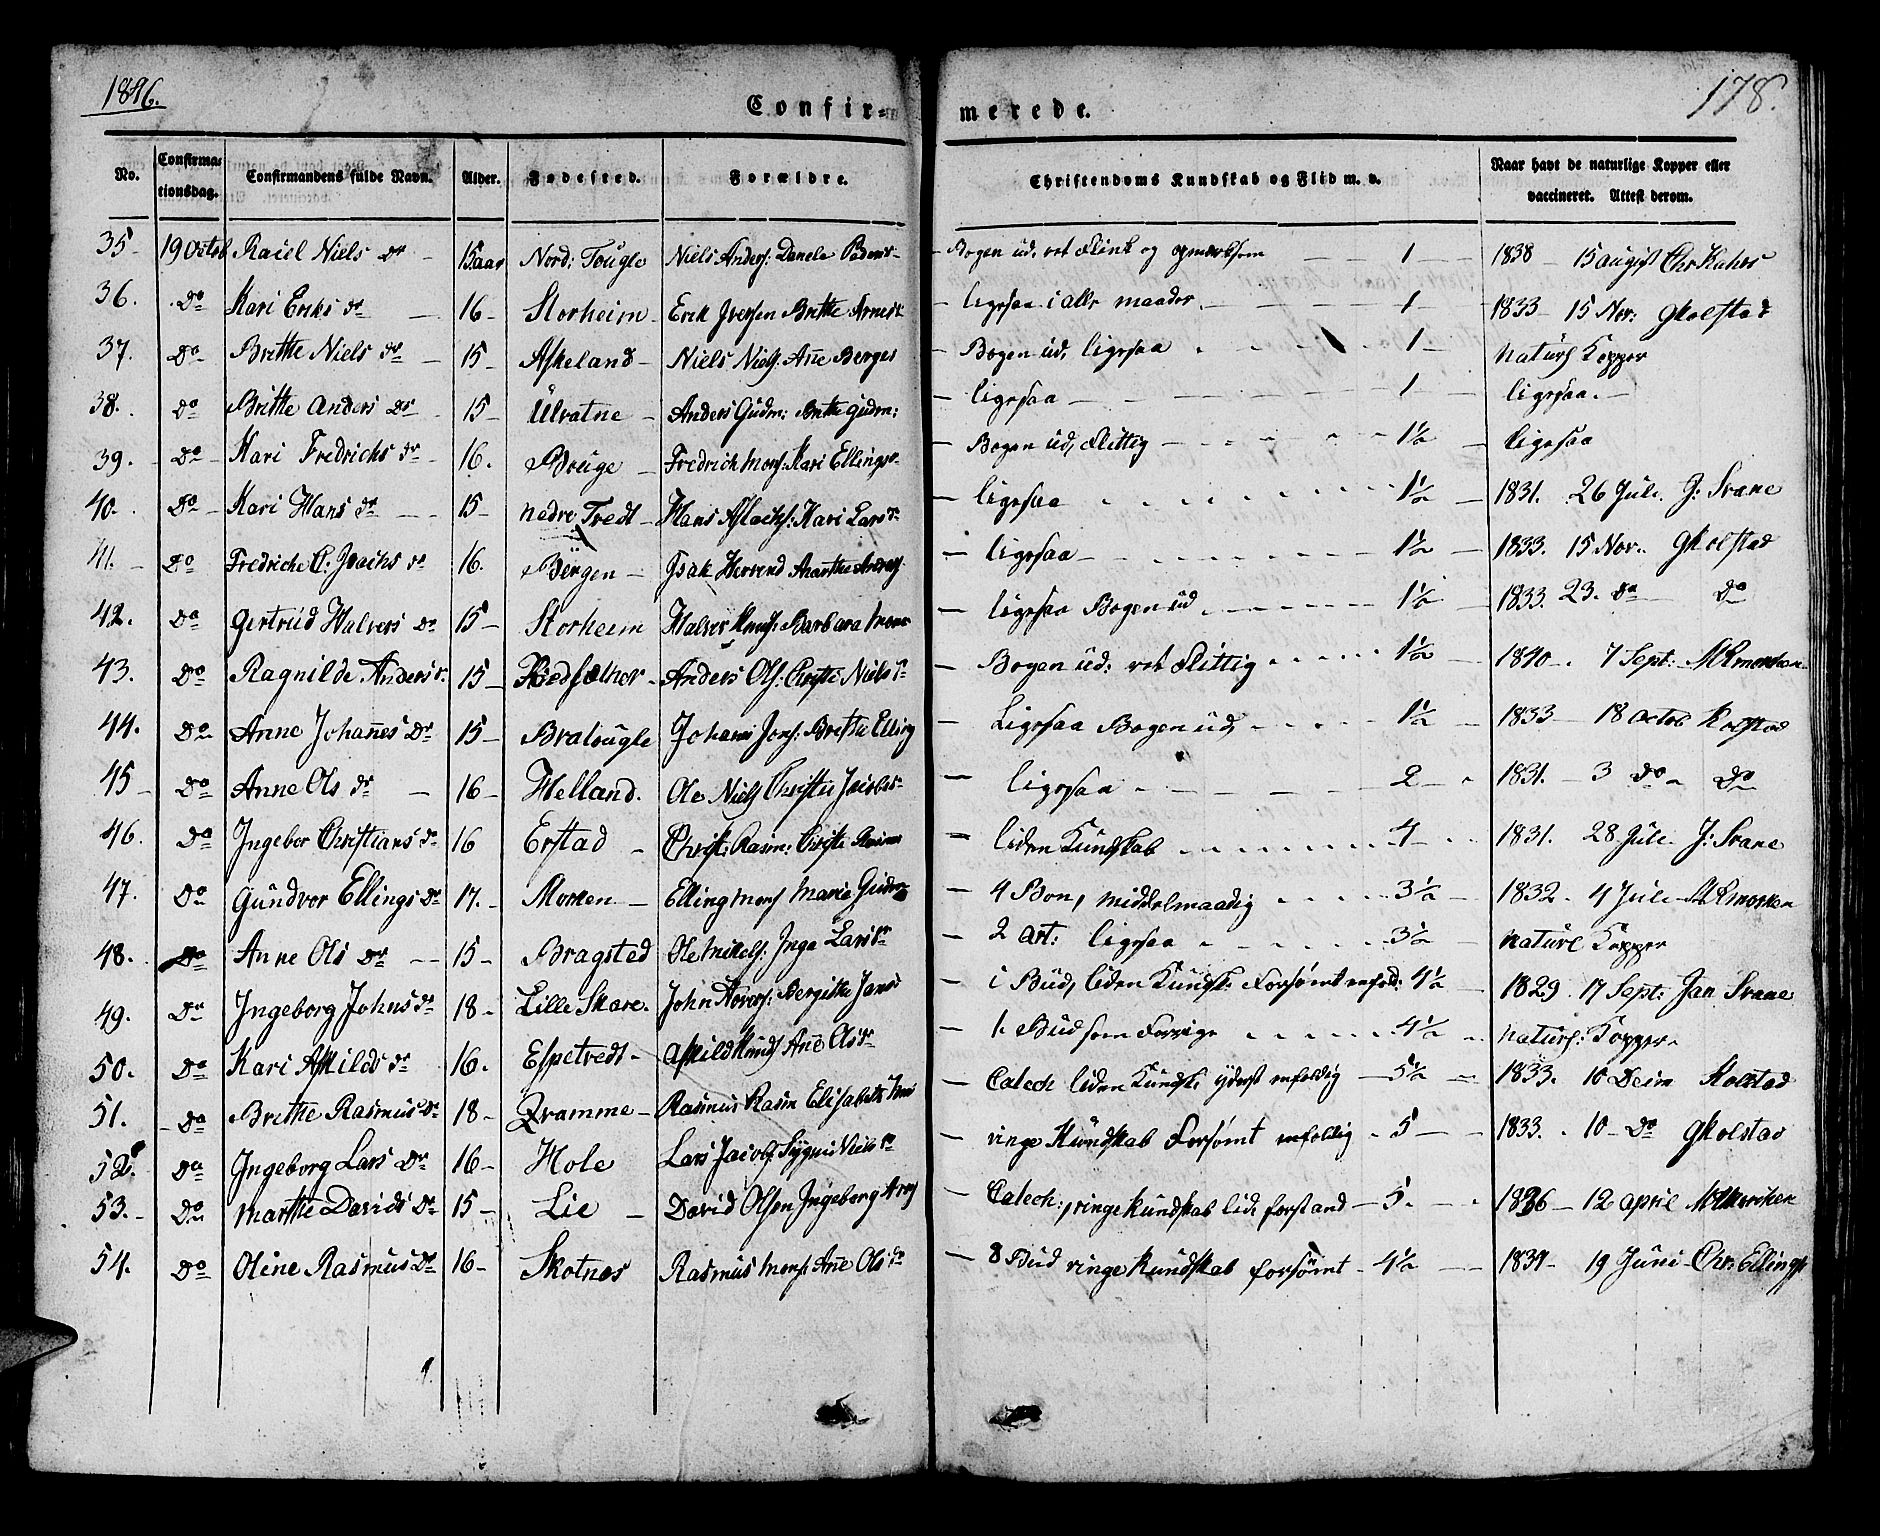 1846.
178.
Confir= merede.
No. Confirmationsdag. Confirmandens fulde Navn. Alder. Fødested. Forældre. Christendoms Kundskab og Flid m. v. Naar havt de naturlige Kopper eller vaccineret. Attest derom.
35 19 Octob Niels Dr 15 aar Nord: Tougle Niels Anders: Bogen ud, vel Flink og opmærksom 1 1838 15 august Chr
36. Do Kari Eriks dr 16 Storheim Erik Iversen Brithe ligesaa i alle maader 1 1833 15 Nov: GKolstad
37. Do Brithe Niels dr 15 Askeland Niels Niels: Añe Bogen ud, ligesaa 1 naturl Kopper
38. Do Brithe Anders Dr 15 Ulvatne Anders Gudm: Brithe Gudm: ligesaa 1 ligesaa
39. Do Kari Fredrichs dr 16. Fredrich Mons: Kari Ellings Bogen ud, Flittig 1½ ligesaa
40. Do Kari Hans dr 15 nedre Tredt Hans Aslachs: Kari Lars dr ligesaa 1½ 1831. 26 Juli J: Svane
41. Do Fredriche C: Isachs dr 16. Bergen Isak ligesaa 1½ 1833. 15 Nov. GKolstad
42. Do Gertrud Halvers Dr 15 Storheim Halver Knuts: Barbara ligesaa Bogen ud 1½ 1833. 23. Do Do
43. Do Ragnilde Anders dr 15 Anders Ols: Christi Niels dr Bogen ud: vel Flittig 1½ 1840. 7 Sept:
44. Do Anne Johañes Dr 15 Bratougle Johanes Jons: Brithe Elling Ligesaa Bogen ud, 1½ 1833 18 Octob Kolstad
45 Do Anne Ols dr 16 Helland. Ole Niels Christie Jacobs ligesaa 2 1831. 3 Do Do
46. Do Ingebor Christians dr 16 Erstad Christ: Rasm: Christi liden Kundskab 4 1831. 28 Juli J: Svane
47. Do Gundvor Ellings Dr 17. Morken Elling Mons Maria 4 Bøn, middelmaadig 3½ 1832. 4 Juli
48. Do Anne Ols Dr 15 Bragsted Ole Mikels: Inga Lars dr 2 Art: ligesaa 3½ naturl Kopper
49. Do Ingeborg Johns dr 18 Lille Skare. John Bergithe Jans 1 Bud, liden Kundsk: Forsømt enfold: 4½ 1829. 17 Sept: Jan Svane
50. Do Kari Askilds dr 16. Espetvedt Askild Knuds Añe Ols dr 1. Bud som Forrige 4½ naturl: Kopper
51. Do Brithe Rasmus Dr 18 Qvamme Rasmus Rasm Elisabeth Catech liden Kundsk: yderst enfoldig 5½ 1833. 10 Kolstad
52. Do Ingeborg Lars Dr 16 Hole Lars Jacobs Niels dr ringe Kundskab Forsømt enfoldig 5 1833. 10 Do GKolstad
53. Do Marthe Davids Dr 15 Lie David Olsen Ingeborg Catech:, ringe Kundskab lidt forstand 5. 1836 12 april
54. Do Oline Rasmus Dr 16 Skotnes Rasmus Mons: Añe Ols dr 8 Bud ringe Kundskab forsømt 4½ 19 Juni Chr: Ellings